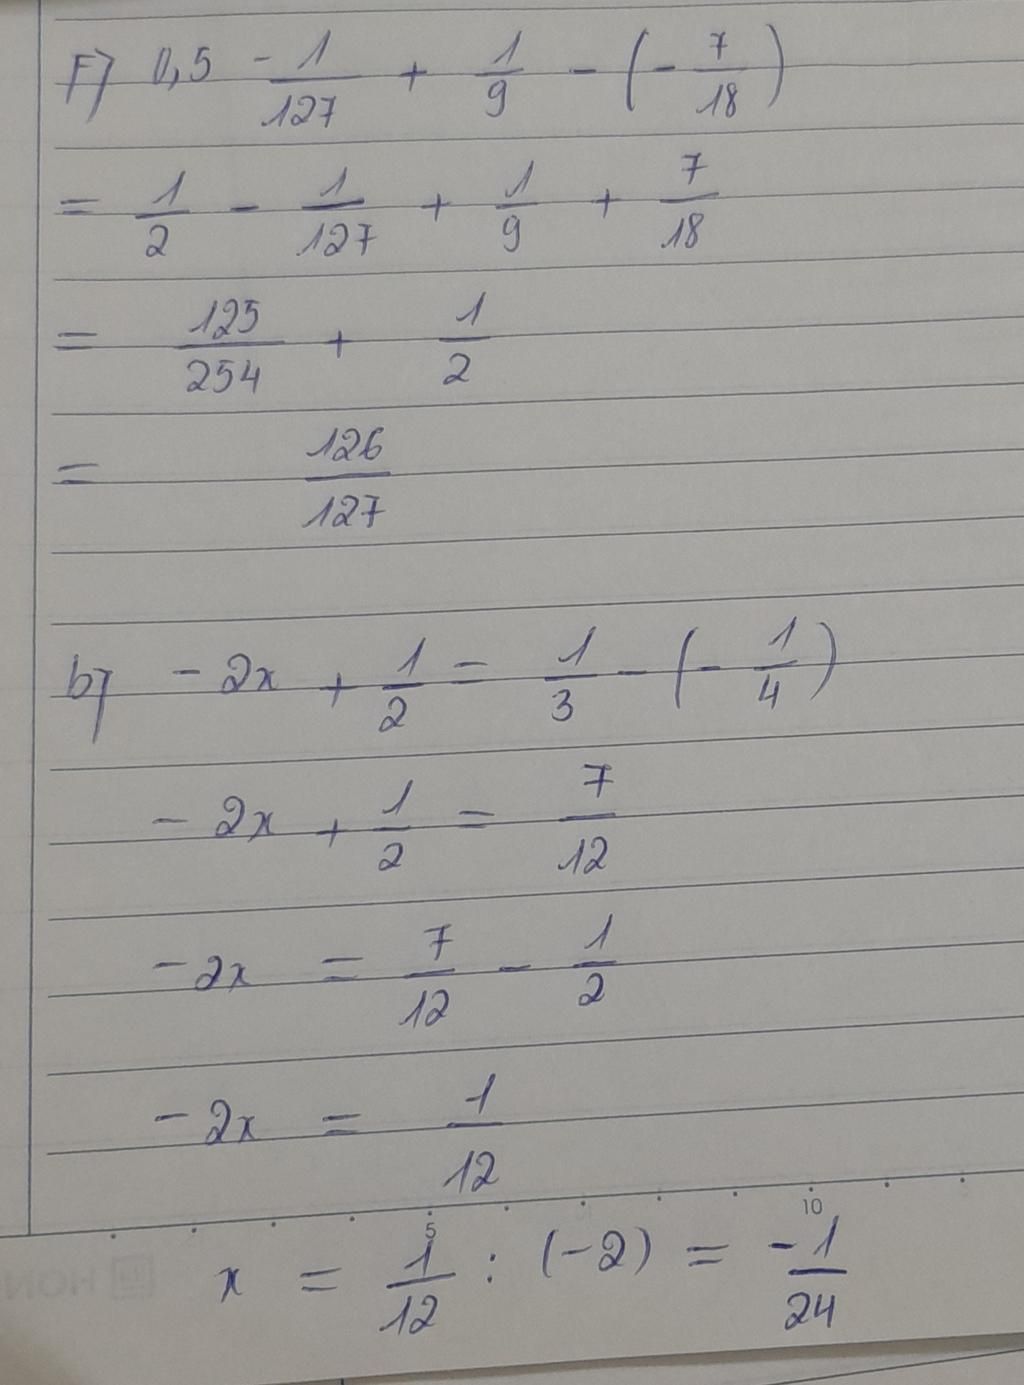 F) 0,5 -1/127 + 1/9 - (- 7/18)
= 1/2 - 1/127 + 1/9 + 7/18
= 125/254 + 1/2
= 126/127
b) - 2x + 1/2 = 1/3 - (- 1/4)
- 2x + 1/2 = 7/12
- 2x = 7/12 - 1/2
- 2x = 1/12
5 10
x = 1/12 : (-2) = -1/24